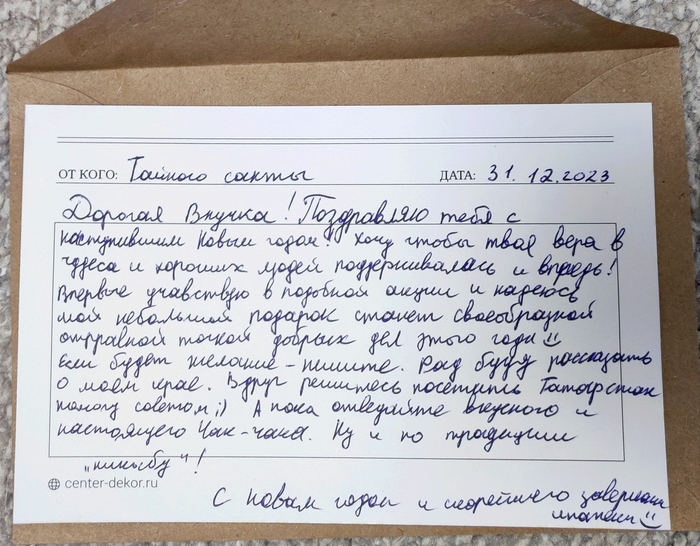 ОТ КОГО: Тайного санты ДАТА: 31.12.2023
Дорогая Внучка! Поздравляю тебя с
наступившим Новым годом! Хочу чтобы твая вера в
чудеса и хороших людей поддерживалась и впредь!
Впервые учавствую в подобной акции и надеюсь
мой небольшой подарок станет своеобразной
отправной точкой добрых дел этого года
Если будет желание - пишите. Рад буду рассказать
о моём крае. Вдруг решитесь посетить Татарстан
помогу советом ;) А пока отведайте вкусного и
настоящего Чак-чака. Ну и по традиции
"пикабу"!
center-dekor.ru
С новым годом и скорейшего завершения
ипотеки